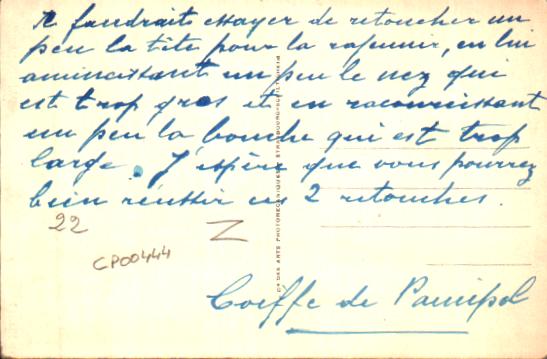 Il faudrait essayer de retoucher un
peu la tête pour la rajeunir, en lui
amincissant un peu le nez qui
est trop gros et en raccourcissant
un peu la bouche qui est trop
large. J'espère que vous pourrez
bien réussir ces 2 retouches.
22
CP00444
Z
Coiffe de Paimpol
Cie DES ARTS PHOTOMECANIQUES STRASBOURG-SCHILTIGHEIM